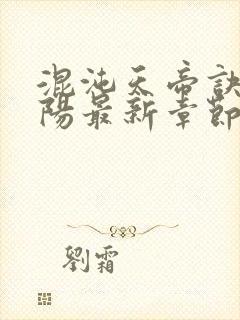 混沌天帝訣
陽最新章節
劉霜